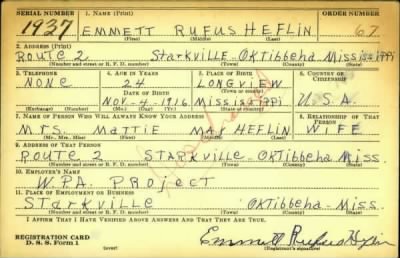 SERIAL NUMBER 1. NAME (Print) ORDER NUMBER
1937 EMMETT RUFUS HEFLIN 67
(First) (Middle) (Last)
2. ADDRESS (Print)
ROUTE 2 STARKVILLE - OKTIBBEHA MISSISSIPPI
(Number and street or R. F. D. number) (Town) (County) (State)
3. TELEPHONE 4. AGE IN YEARS 5. PLACE OF BIRTH 6. COUNTRY OF CITIZENSHIP
NONE 24 LONGVIEW
DATE OF BIRTH
NOV-4-1916 MISSISSIPPI U.S.A.
(Exchange) (Number) (Mo.) (Day) (Yr.) (State or country)
7. NAME OF PERSON WHO WILL ALWAYS KNOW YOUR ADDRESS 8. RELATIONSHIP OF THAT PERSON
MRS. MATTIE MAY HEFLIN WIFE
(Mr., Mrs., Miss) (First) (Middle) (Last)
9. ADDRESS OF THAT PERSON
ROUTE 2 STARKVILLE - OKTIBBEHA MISS.
(Number and street or R. F. D. number) (Town) (County) (State)
10. EMPLOYER'S NAME
W.P.A. PROJECT
11. PLACE OF EMPLOYMENT OR BUSINESS
STARKVILLE OKTIBBEHA - MISS.
(Number and street or R. F. D. number) (Town) (County) (State)
I AFFIRM THAT I HAVE VERIFIED ABOVE ANSWERS AND THAT THEY ARE TRUE.
REGISTRATION CARD
D. S. S. Form 1 Emmett Rufus Heflin
(Registrant's signature)